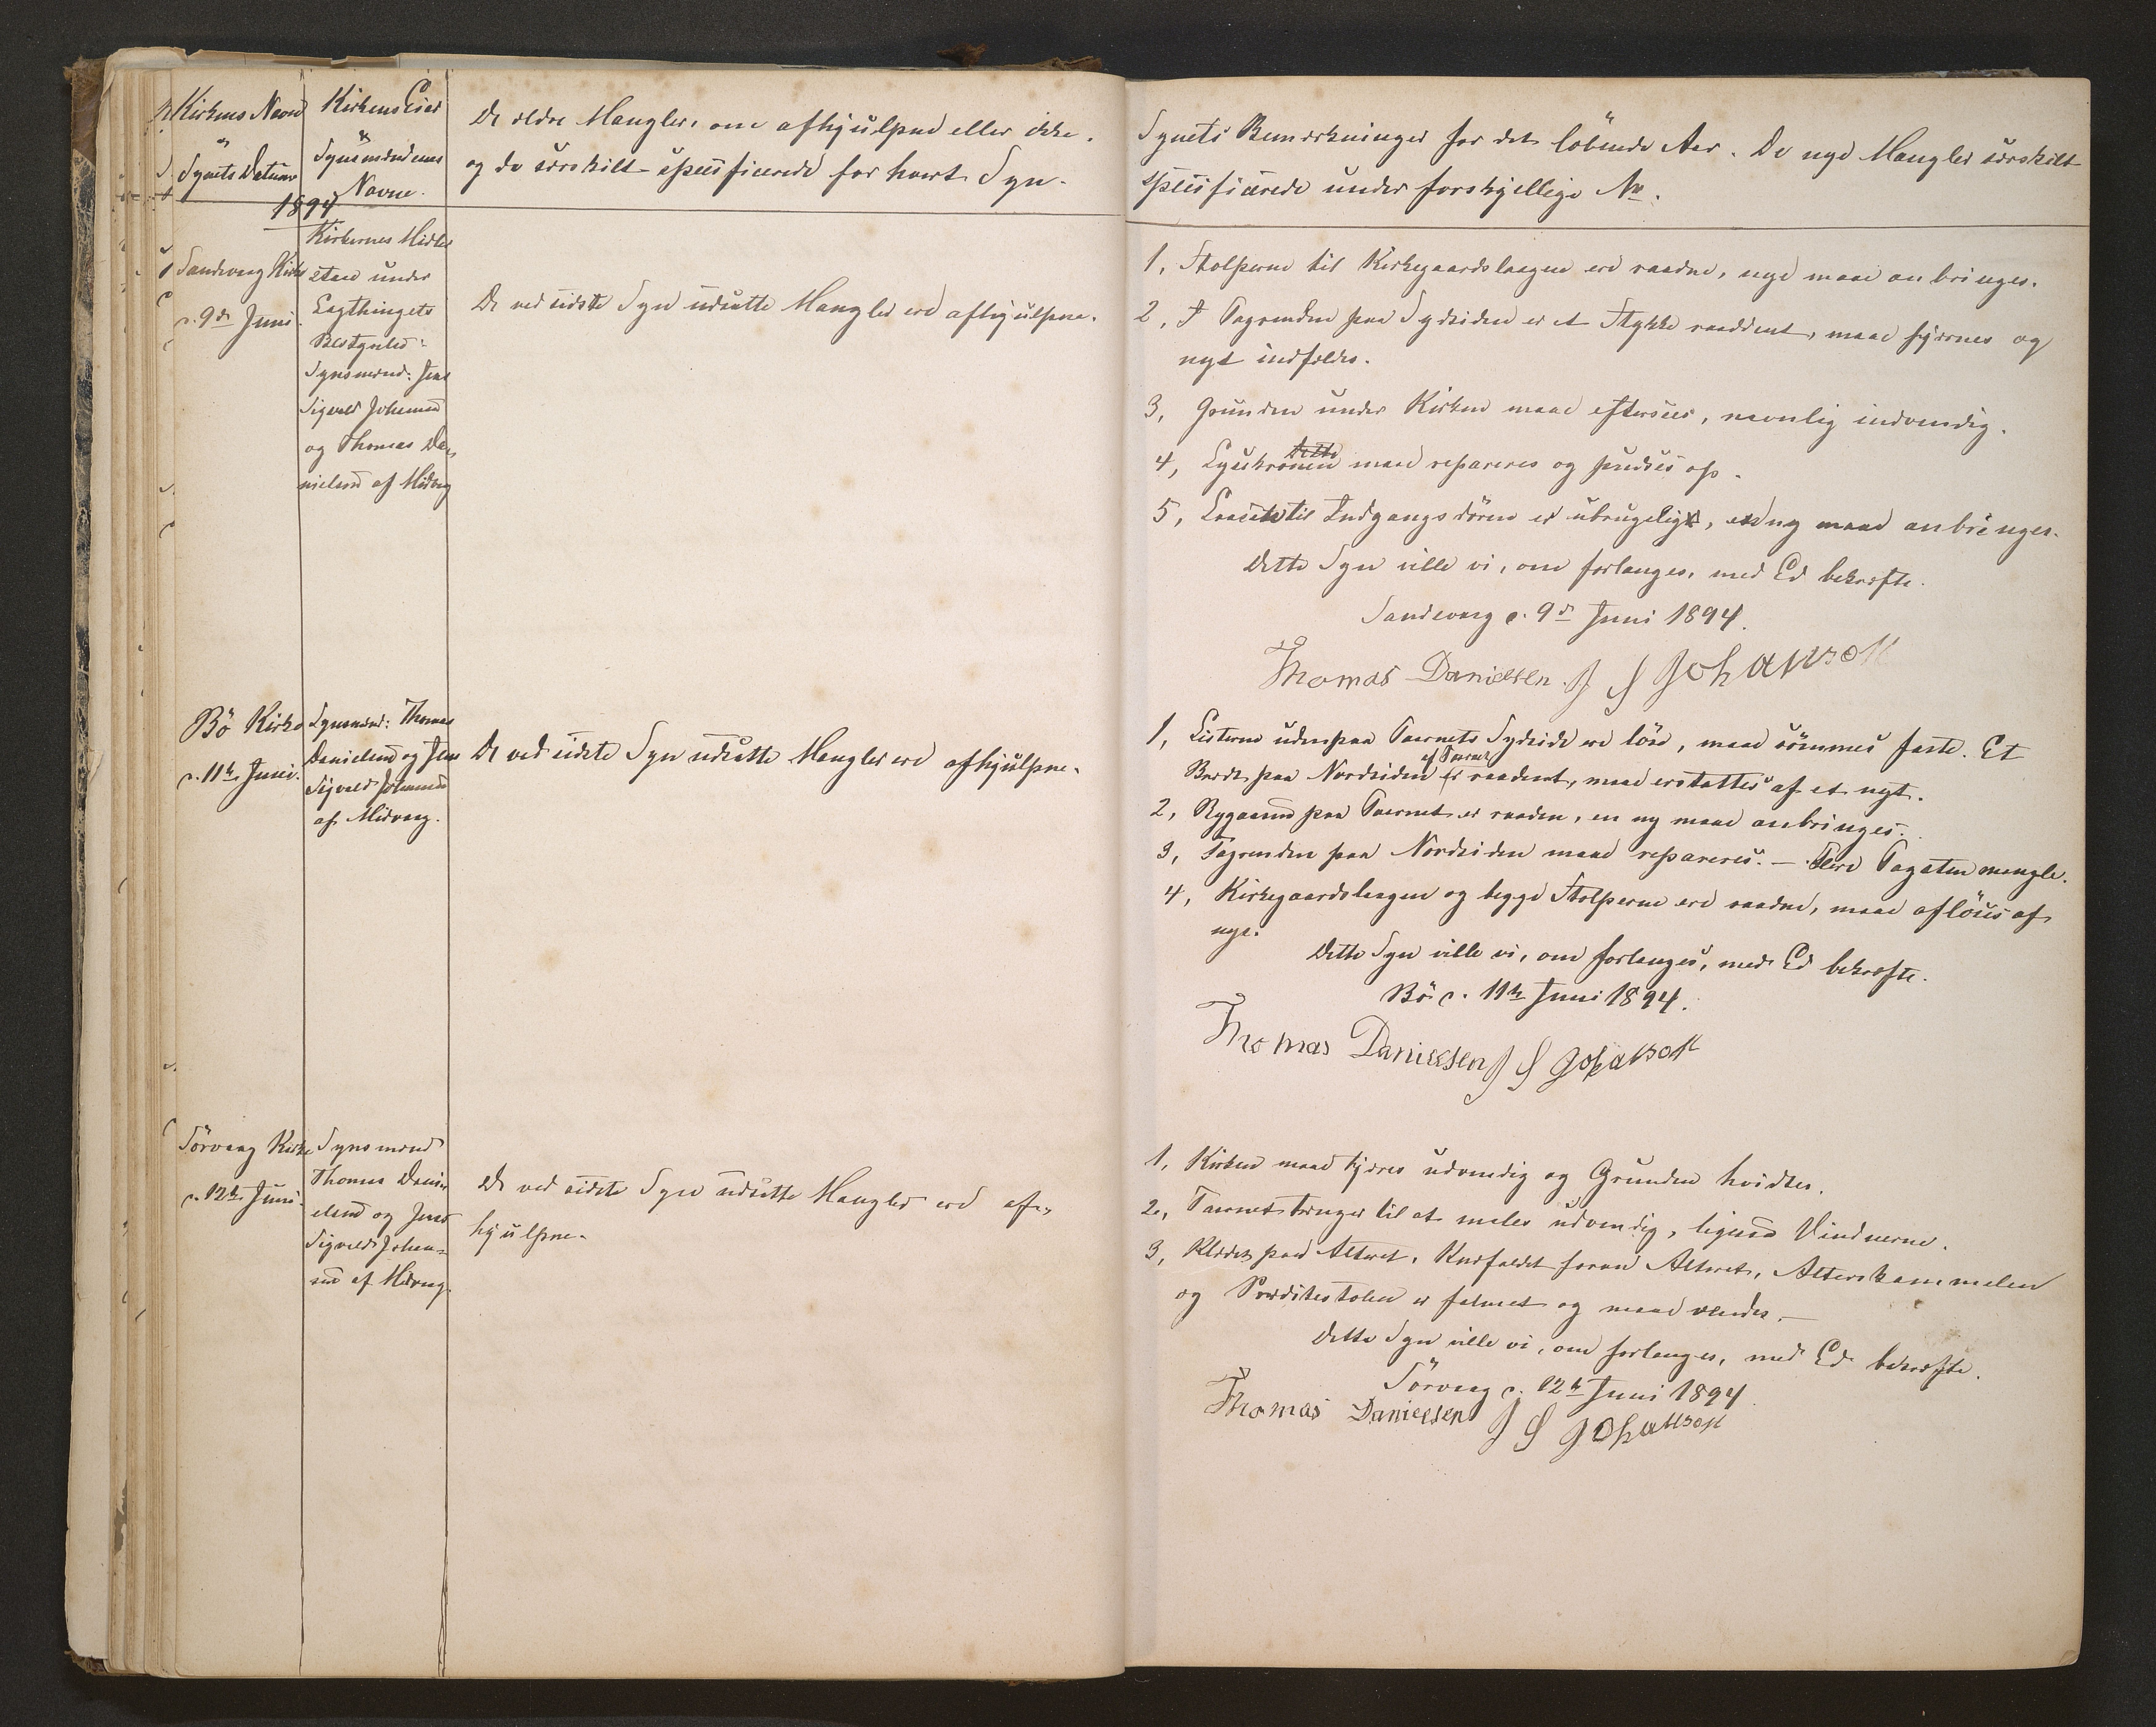 Kirkens Navn
&
Synets Datum
1894
Kirkens Eier
&
Synsmændenes
Navne.
De ældre Mangler, om afhjulpne eller ikke,
og de særskilt specificerede for hvert Syn.
Sandevaag Kirke
d. 9de Juni.
Kirkernes Midler
staae under
Lagthingets
Bestyrelse:
Synsmænd: Jens
Sigvald Johansen
og Thomas Da-
nielsen af Midvaag
De ved sidste Syn udsatte Mangler ere afhjulpne.
Bö Kirke
d. 11te Juni.
Synsmænd: Thomas
Danielsen og Jens
Sigvald Johansen
af Midvaag.
De ved sidste Syn udsatte Mangler ere afhjulpne.
Sörvaag Kirke
d. 12te Juni.
Synsmænd
Thomas Dani-
elsen og Jens
Sigvald Johan-
sen af Midvaag.
De ved sidste Syn udsatte Mangler ere af-
hjulpne.
Synets Bemærkninger for det löbende Aar. De nye Mangler særskilt
specificerede under forskjellige No.
1, Stolperne til Kirkegaardslaagen ere raadne, nye maae anbringes.
2, I Tagrenden paa Sydsiden er et Stykke raaddent, maae fjernes og
nyt indfældes.
3, Grunden under Kirken maae eftersees, navnlig indvendig.
4, Lysekronen maae repareres og pudses op.
5, Laasen til Indgangsdören er ubrugelig, en ny maae anbringes.
Dette Syn ville vi, om forlanges, med Ed bekræfte.
Sandevaag d. 9de Juni 1894.
Thomas Danielsen. J S Johanson
1, Listerne udenpaa Taarnets Sydside ere löse, maae sömmes faste. Et
Bræt paa Nordsiden af Taarnet er raadent, maae erstattes af et nyt.
2, Rygaasen paa Taarnet er raaden, en ny maae anbringes.
3, Tagrenden paa Nordsiden maae repareres. — Flere Tagsten mangle.
4, Kirkegaardslaagen og begge Stolperne ere raadne, maae aflöses af
nye.
Dette Syn ville vi, om forlanges, med Ed bekræfte.
Bö d. 11te Juni 1894.
Thomas Danielsen J S Johanson
1, Kirken maae tjæres udvendig og Grunden hvidtes.
2, Taarnet trænger til at males udvendig, ligesaa Vinduerne.
3, Klædet paa Alteret, Knæfaldet foran Alteret, Alterskammelen
og Prædikestolen er falmet og maae vendes. —
Dette Syn ville vi, om forlanges, med Ed bekræfte.
Sörvaag d. 12te Juni 1894
Thomas Danielsen J S Johanson